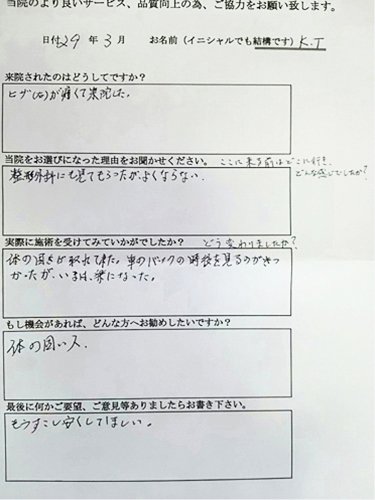 当院のより良いサービス、品質向上の為、ご協力をお願い致します。
日付 29 年 3 月 お名前（イニシャルでも結構です） K.T
来院されたのはどうしてですか？
ヒザ(右)が痛くて来院した。
当院をお選びになった理由をお聞かせください。 ここに来る前はどこに行き、
どんな感じでしたか？
整形外科にも見てもらったがよくならない。
実際に施術を受けてみていかがでしたか？ どう変わりましたか？
体の固さが取れてきた。車のバックの時後を見るのがきつ
かったが、いまは楽になった。
もし機会があれば、どんな方へお勧めしたいですか？
体の固い人。
最後に何かご要望、ご意見等ありましたらお書き下さい。
もうすこし安くしてほしい。